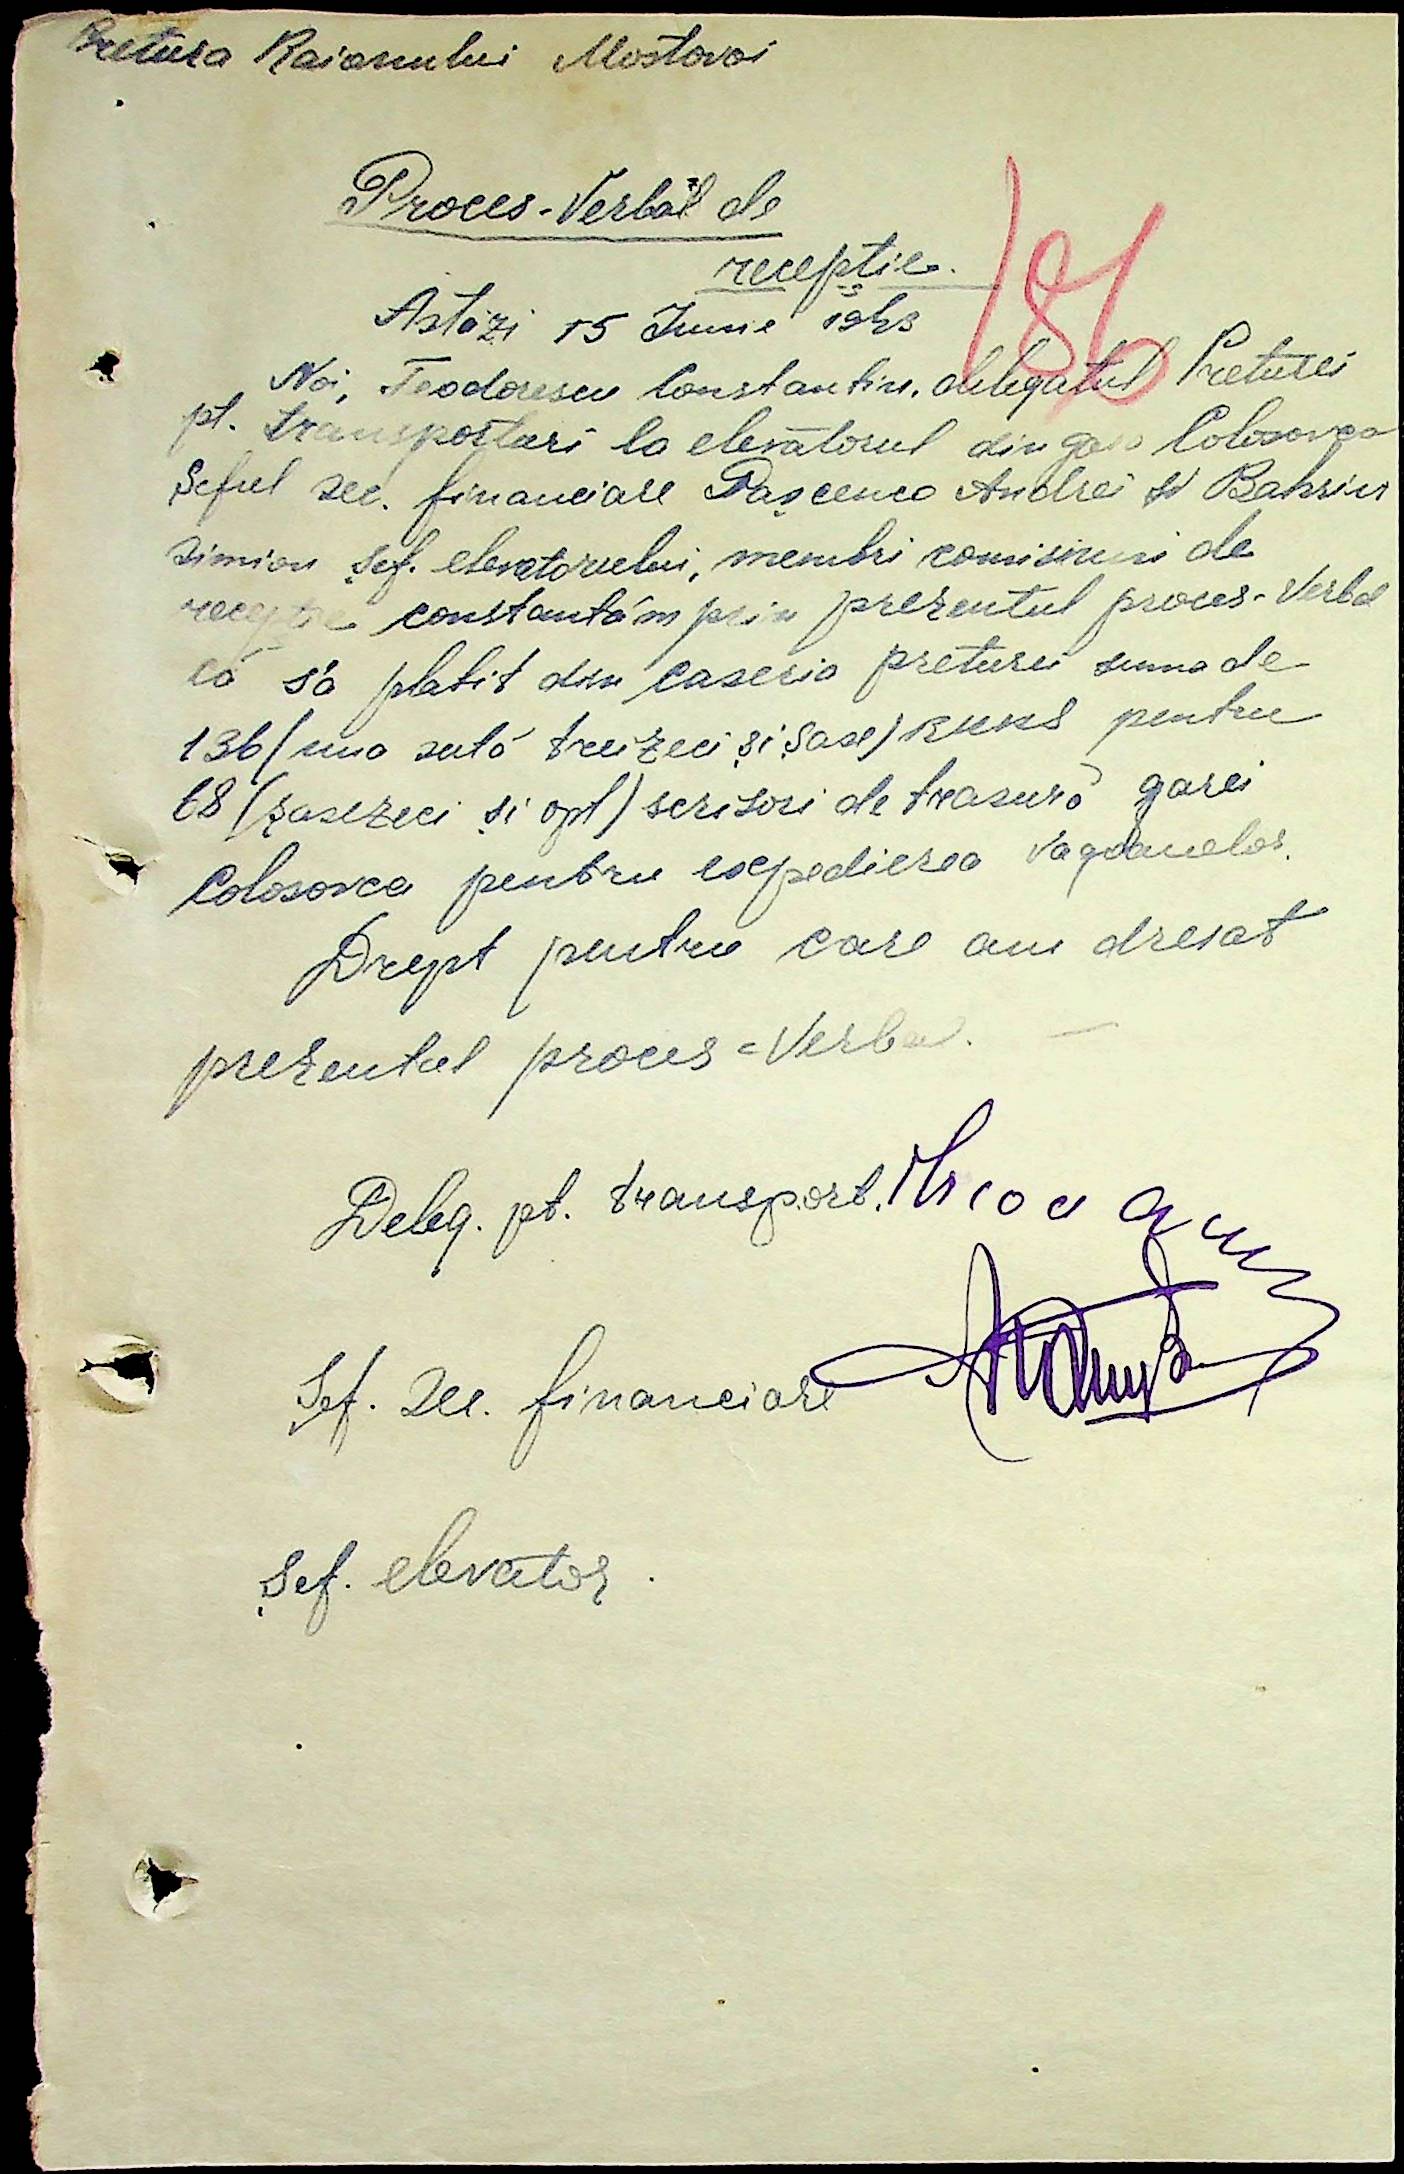 Pretura Raionului Mostovoi
Proces-Verbal de
recepție.
186
Astăzi 15 Iunie 1943
Noi, Teodorescu Constantin, delegatul Preturei
pt. transporturi la elevatorul din gara Colosovca
Șeful sec. financiare Pașcenco Andrei și
Simion șef. elevatorului, membri comisiuni de
recepție constantăm prin prezentul proces-Verbal
că s'a platit din caseria preturei suma de
136 (una sută treizeci și șase) RKKS pentru
68 (șasezeci și opt) scrisori de trasură gărei
Colosovca pentru expedierea vagoanelor.
Drept pentru care am dresat
prezentul proces=Verbal. —
Deleg. pt. transport.
Șef. sec. financiare
Șef. elevator.